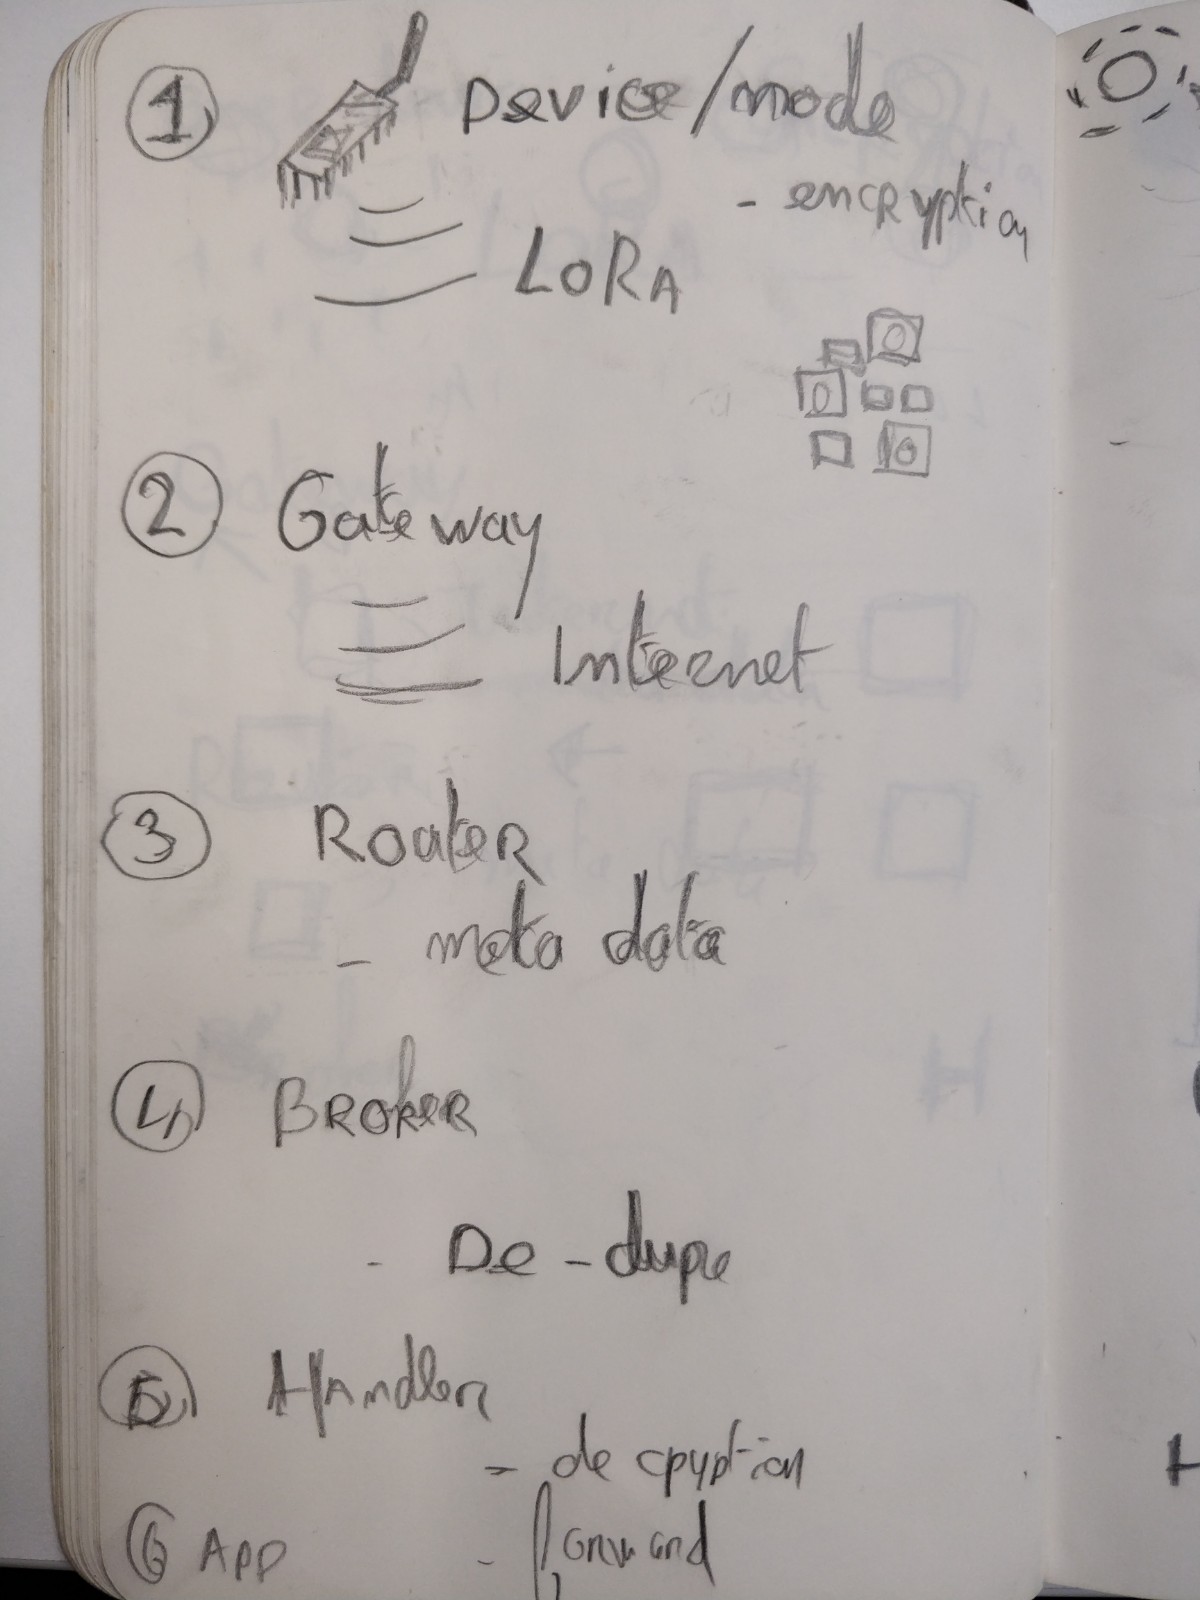 1 Device/node
- encryption
LoRa
2 Gateway
Internet
3 Router
- meta data
4 Broker
- De-dupe
5 Handler
- decpyption
6 App - forward